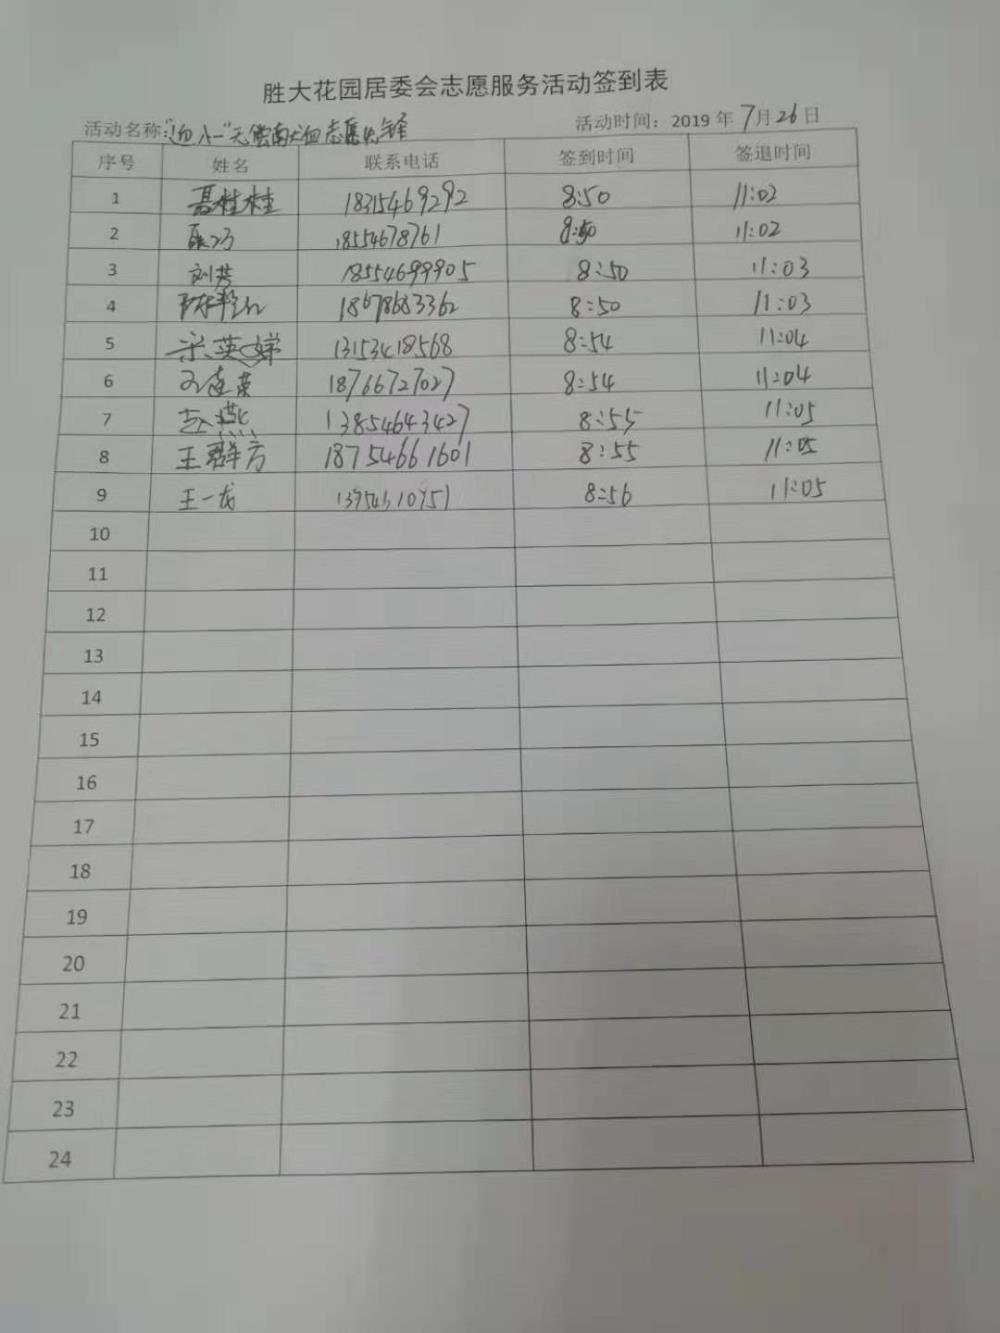 胜大花园居委会志愿服务活动签到表
活动名称:"迎八一"无偿献血志愿 活动时间: 2019 年 7月 26 日
序号 姓名 联系电话 签到时间 签退时间
1 桂桂 18315469292 8:50 11:02
2 18554678761 8:50 11:02
3 刘芳 18554699905 8:50 11:03
4 18678683362 8:50 11:03
5 宋英娣 13153418568 8:54 11:04
6 18766727027 8:54 11:04
7 赵燕 13854643427 8:55 11:05
8 王群方 18754661601 8:55 11:05
9 王一龙 8:56 11:05
10
11
12
13
14
15
16
17
18
19
20
21
22
23
24